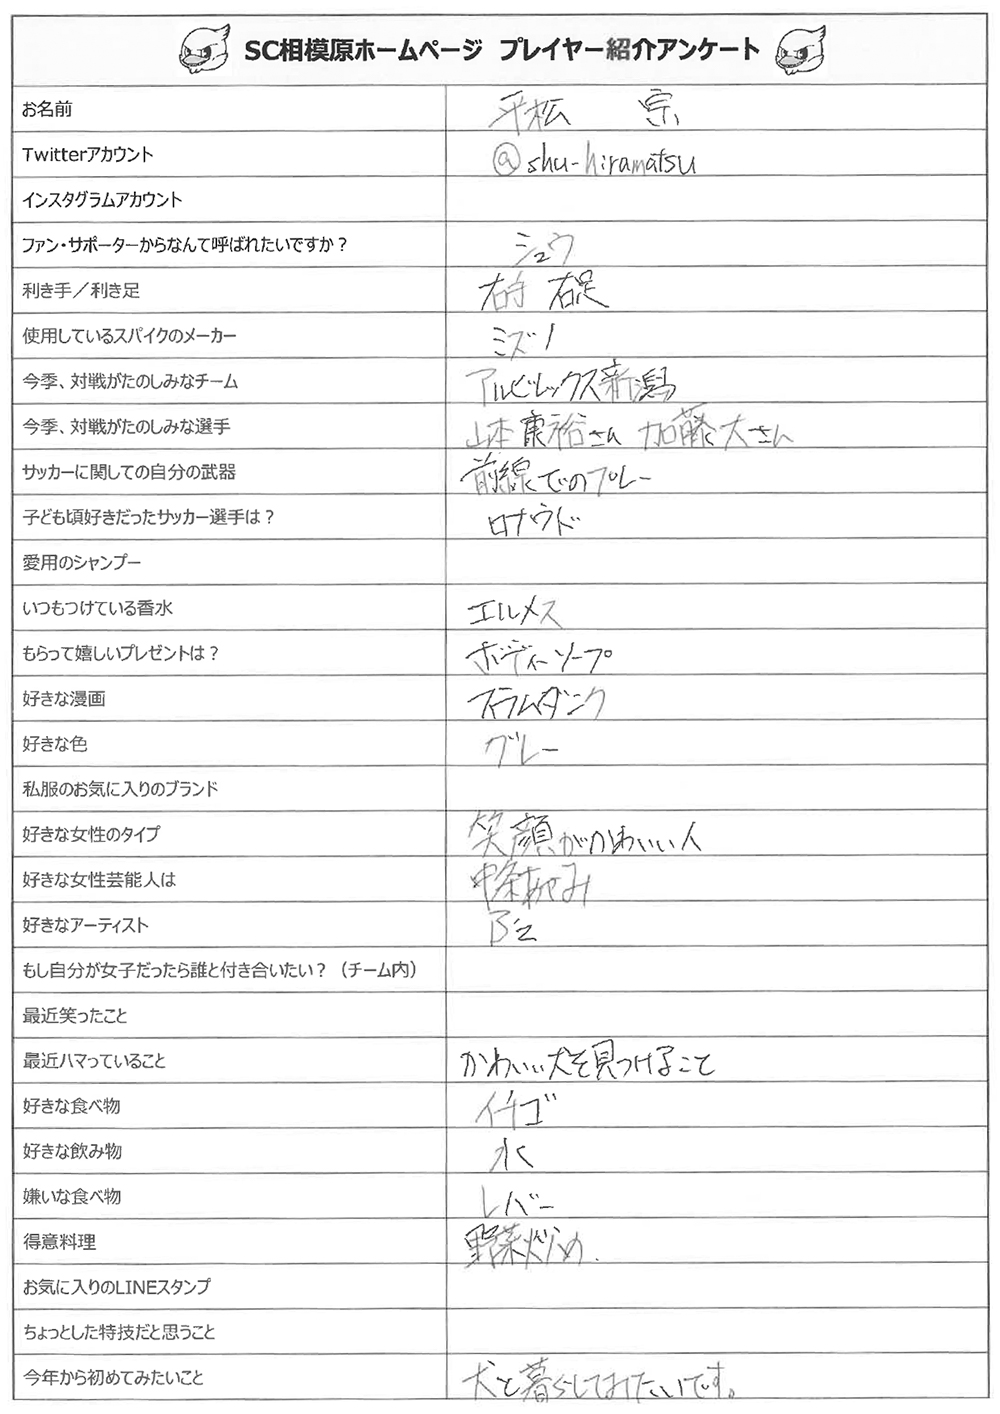 SC相模原ホームページ プレイヤー紹介アンケート
お名前 平松 宗
Twitterアカウント @shu-hiramatsu
インスタグラムアカウント
ファン・サポーターからなんて呼ばれたいですか？ シュウ
利き手／利き足 右手 右足
使用しているスパイクのメーカー ミズノ
今季、対戦がたのしみなチーム アルビレックス新潟
今季、対戦がたのしみな選手 山本康裕さん 加藤大さん
サッカーに関しての自分の武器 前線でのプレー
子ども頃好きだったサッカー選手は？ ロナウド
愛用のシャンプー
いつもつけている香水 エルメス
もらって嬉しいプレゼントは？ ボディーソープ
好きな漫画 スラムダンク
好きな色 グレー
私服のお気に入りのブランド
好きな女性のタイプ 笑顔がかわいい人
好きな女性芸能人は 中条あやみ
好きなアーティスト B'z
もし自分が女子だったら誰と付き合いたい？（チーム内）
最近笑ったこと
最近ハマっていること かわいい犬を見つけること
好きな食べ物 イチゴ
好きな飲み物 水
嫌いな食べ物 レバー
得意料理 野菜炒め.
お気に入りのLINEスタンプ
ちょっとした特技だと思うこと
今年から初めてみたいこと 犬と暮らしてみたいです。